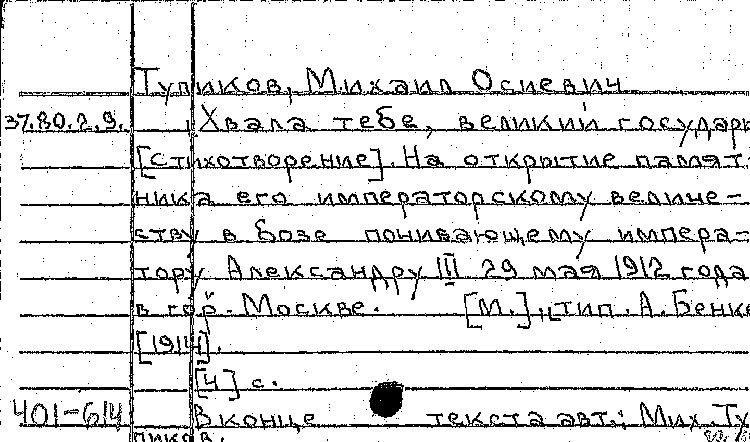 Тупиков, Михаил Осиевич
37.80.2.9. Хвала тебе, великий государь
[стихотворение]. На открытие памят-
ника его императорскому величе-
ству в бозе понивающему импера-
тору Александру III 29 мая 1912 года
в гор. Москве. [М.], тип. А. Бенке
[1914].
[4] с.
401-614 В конце текста авт.: Мих. Ту
пиков.